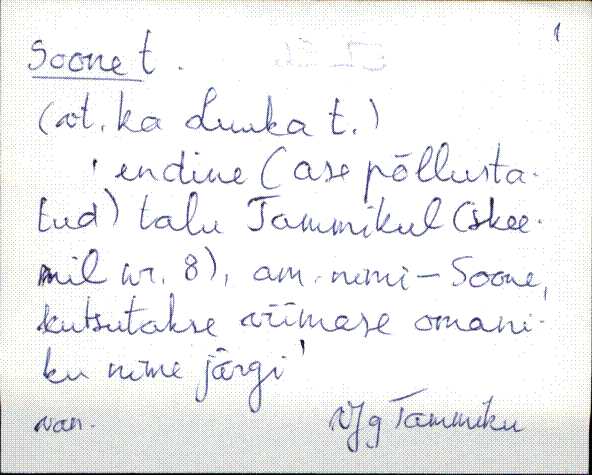 1
Soone t.
(vt. ka Luuka t.)
'endine (ase põllusta-
tud) talu Tammikul (skee-
mil nr. 8), am. nimi - Soone,
kutsutakse viimase omani-
ku nime järgi'
van. VJg Tammiku